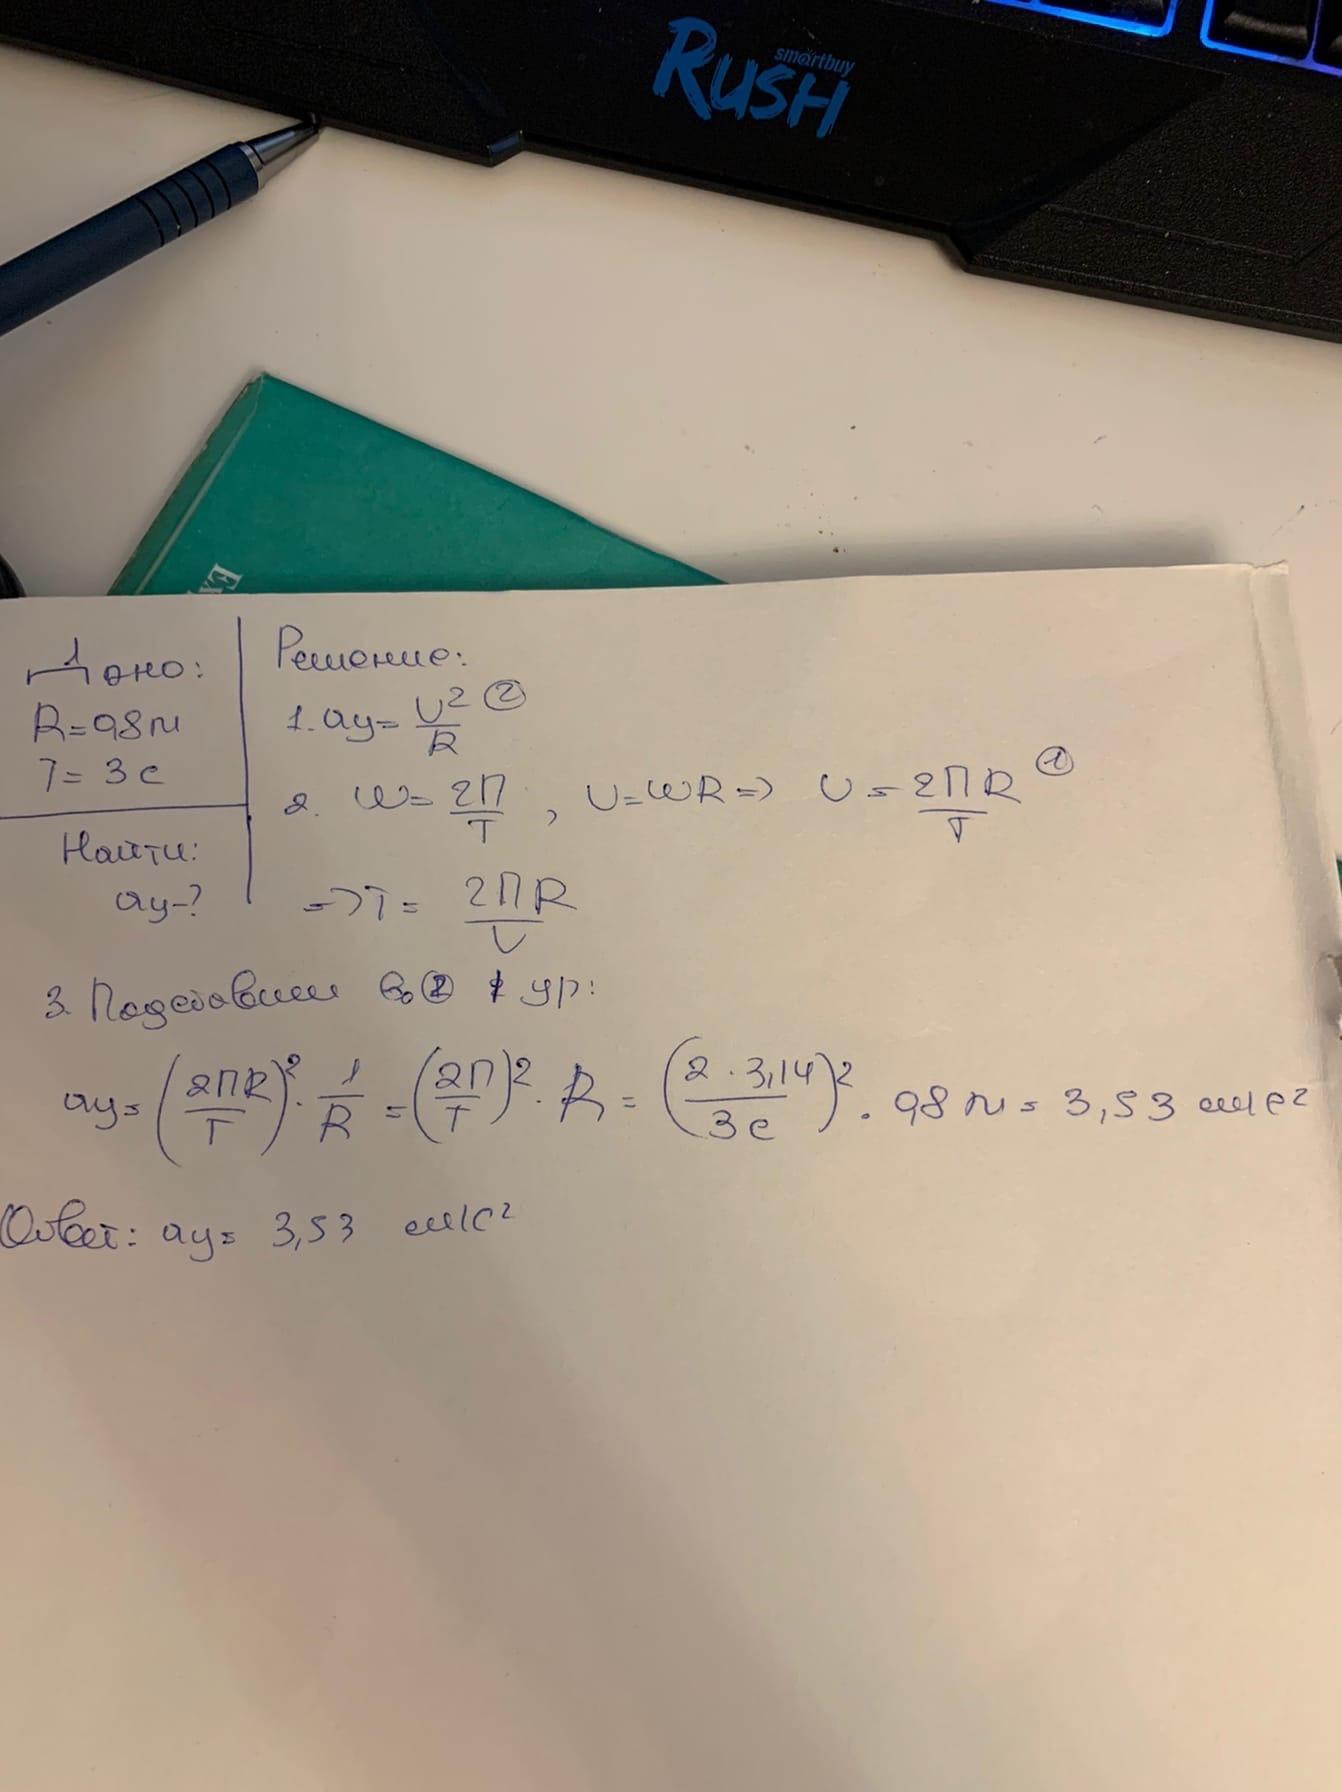 smartbuy
RUSH
Ex
Дано:
R=0,8м
T= 3 с
Найти:
aц-?
Решение:
1. aц= U²/R ②
2. W= 2П/T , U=WR=> U = 2ПR/T ①
=>T= 2ПR/U
3. Подставим во ② ур:
aц= (2ПR/T)² · 1/R = (2П/T)² · R = (2 · 3,14/3с)² · 0,8 м = 3,53 м/с²
Ответ: aц= 3,53 м/с²